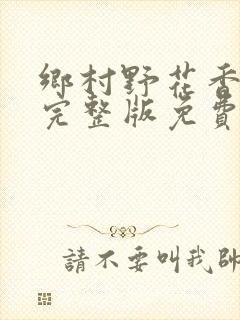 鄉村野花香
完整版免費
請不要叫我帥